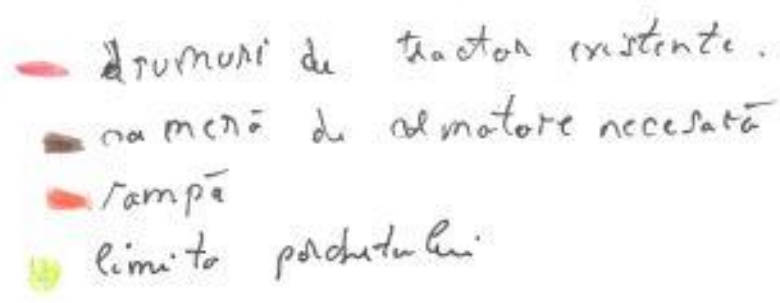 drumuri de tractor existente.
cameră de colmatare necesară
rampă
limita parchetului